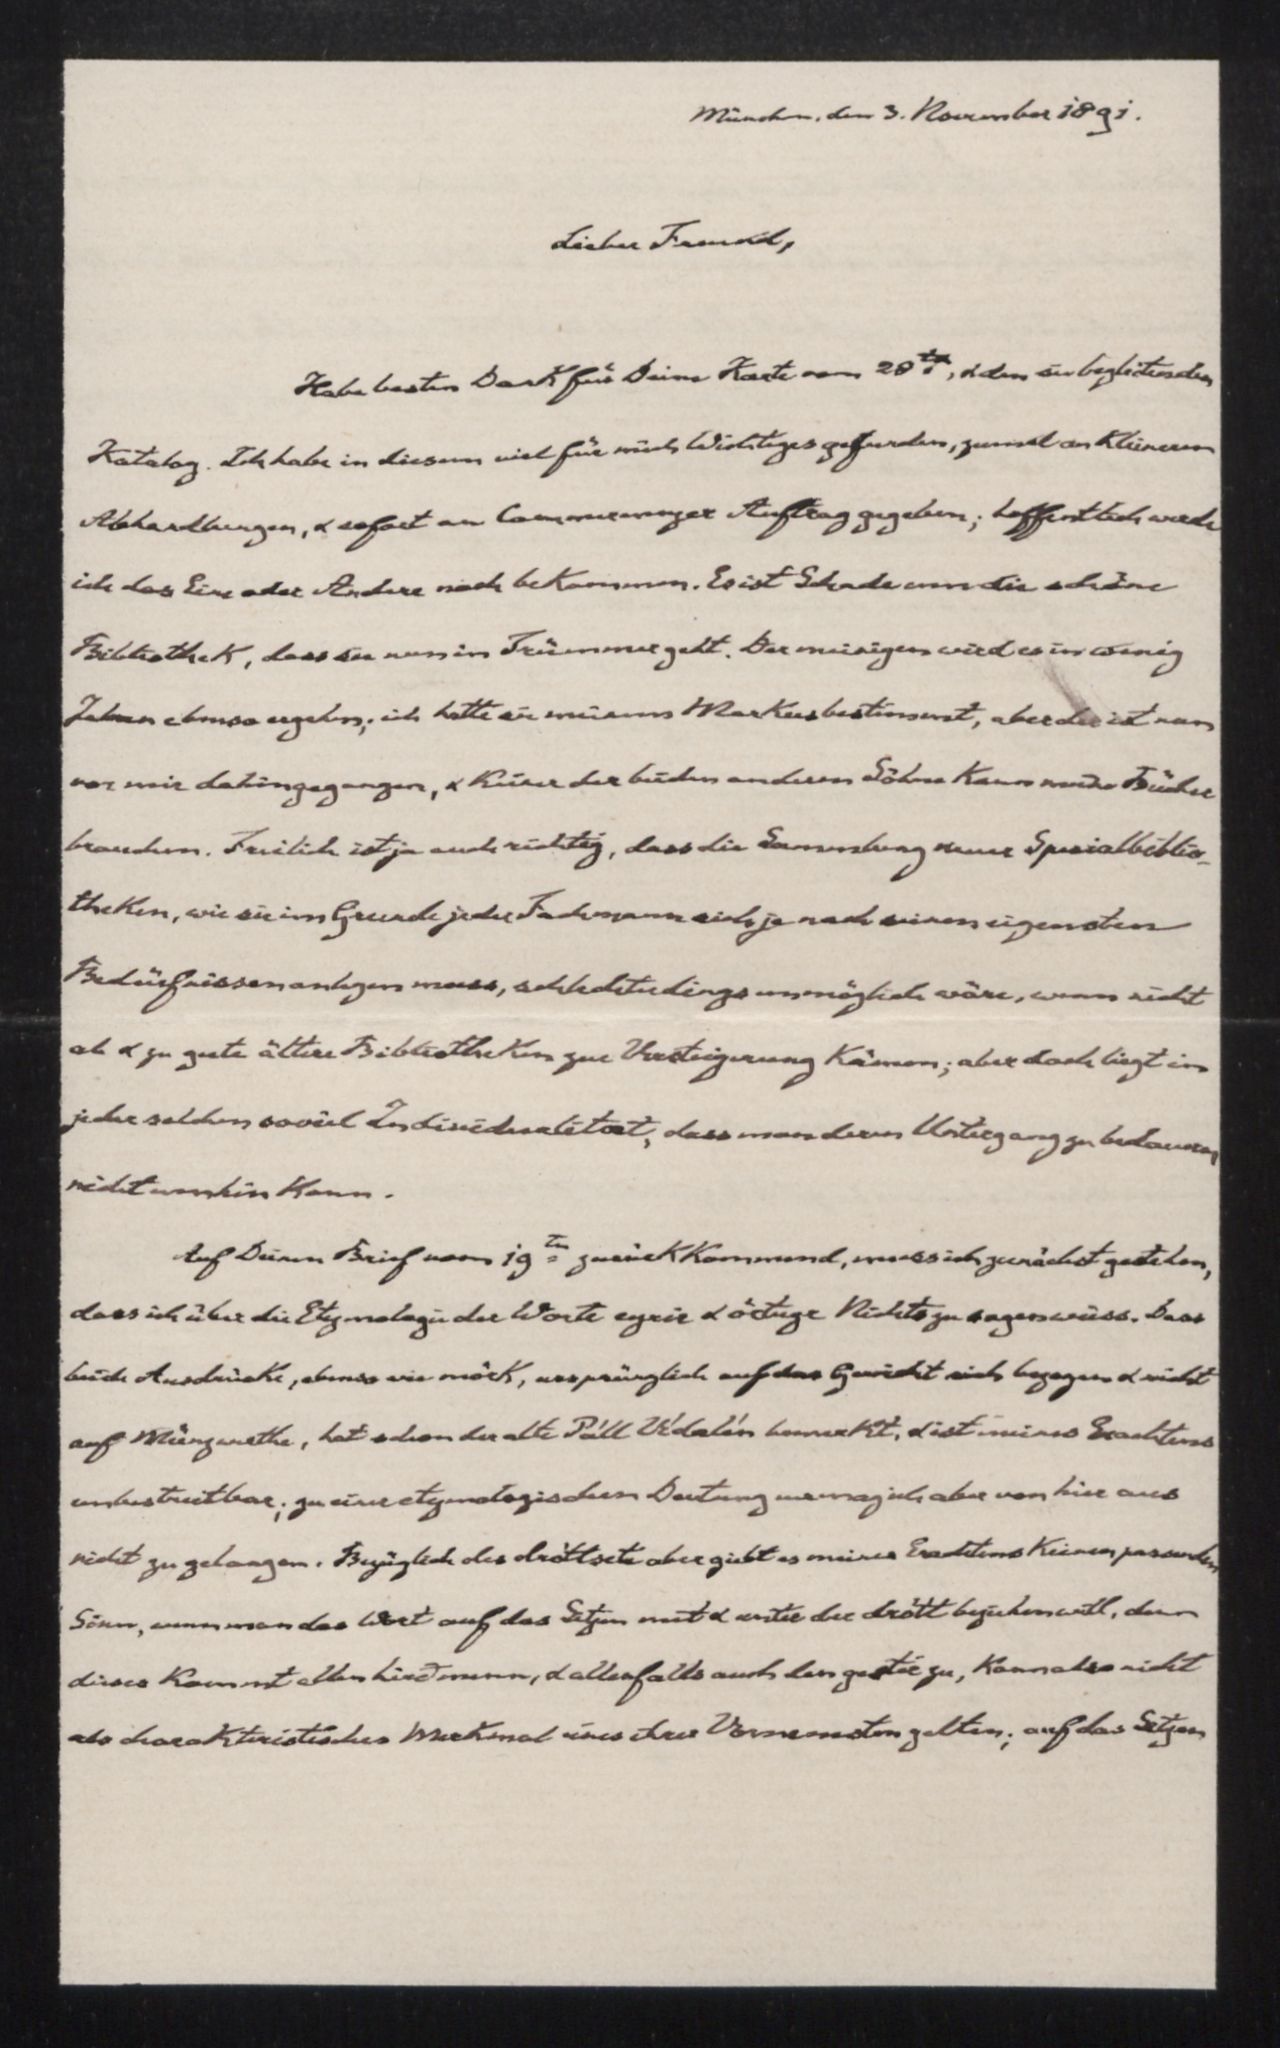 München, den 3. November 1891.
Lieber Freund,
Habe besten Dank für Deine Karte vom 28ten, & den sie begleitenden
Katalog. Ich habe in diesem viel für mich Wichtiges gefunden, zumal an kleineren
Abhandlungen, & sofort an Commermeyer Auftrag gegeben; hoffentlich werde
ich das Eine oder Andere noch bekommen. Es ist Schade um die schöne
Bibliothek, dass sie nun in Trümmer geht. Der meinigen wird es in wenig
Jahren ebenso ergehen; ich hatte sie meinem Markus bestimmt, aber der ist nun
vor mir dahingegangen, & keiner der beiden anderen Söhne kann meine Bücher
brauchen. Freilich ist ja auch richtig, dass die Sammlung neuer Spezialbiblio-
theken, wie sie im Grunde jeder Fachmann sich je nach seinen eigensten
Bedürfnissen anlegen muss, schlechterdings unmöglich wäre, wenn nicht
ab & zu gute ältere Bibliotheken zur Versteigerung kämen; aber doch liegt in
jeder solchen soviel Individualität, dass man deren Untergang zu bedauern
nicht umhin kann.
Auf Deinen Brief vom 19ten zurückkommend, muss ich zunächst gestehen,
dass ich über die Etymologie der Worte eyrir & örtugr Nichts zu sagen weiss. Dass
beide Ausdrücke, ebenso wie mörk, ursprünglich auf das Gewicht sich bezogen & nicht
auf Münzwerthe, hat schon der alte Páll Vídalín bemerkt, & ist meines Erachtens
unbestreitbar; zu einer etymologischen Deutung vermag ich aber von hier aus
nicht zu gelangen. Bezüglich des dróttseti aber giebt es meines Erachtens keinen passenden
Sinn, wenn man das Wort auf das Sitzen mit & unter der drótt beziehen will, denn
dieses kommt allen hirðmenn, & allenfalls auch den gestir zu, kann also nicht
als charakteristisches Merkmal eines ihrer Vornemsten gelten; auf das Setzen